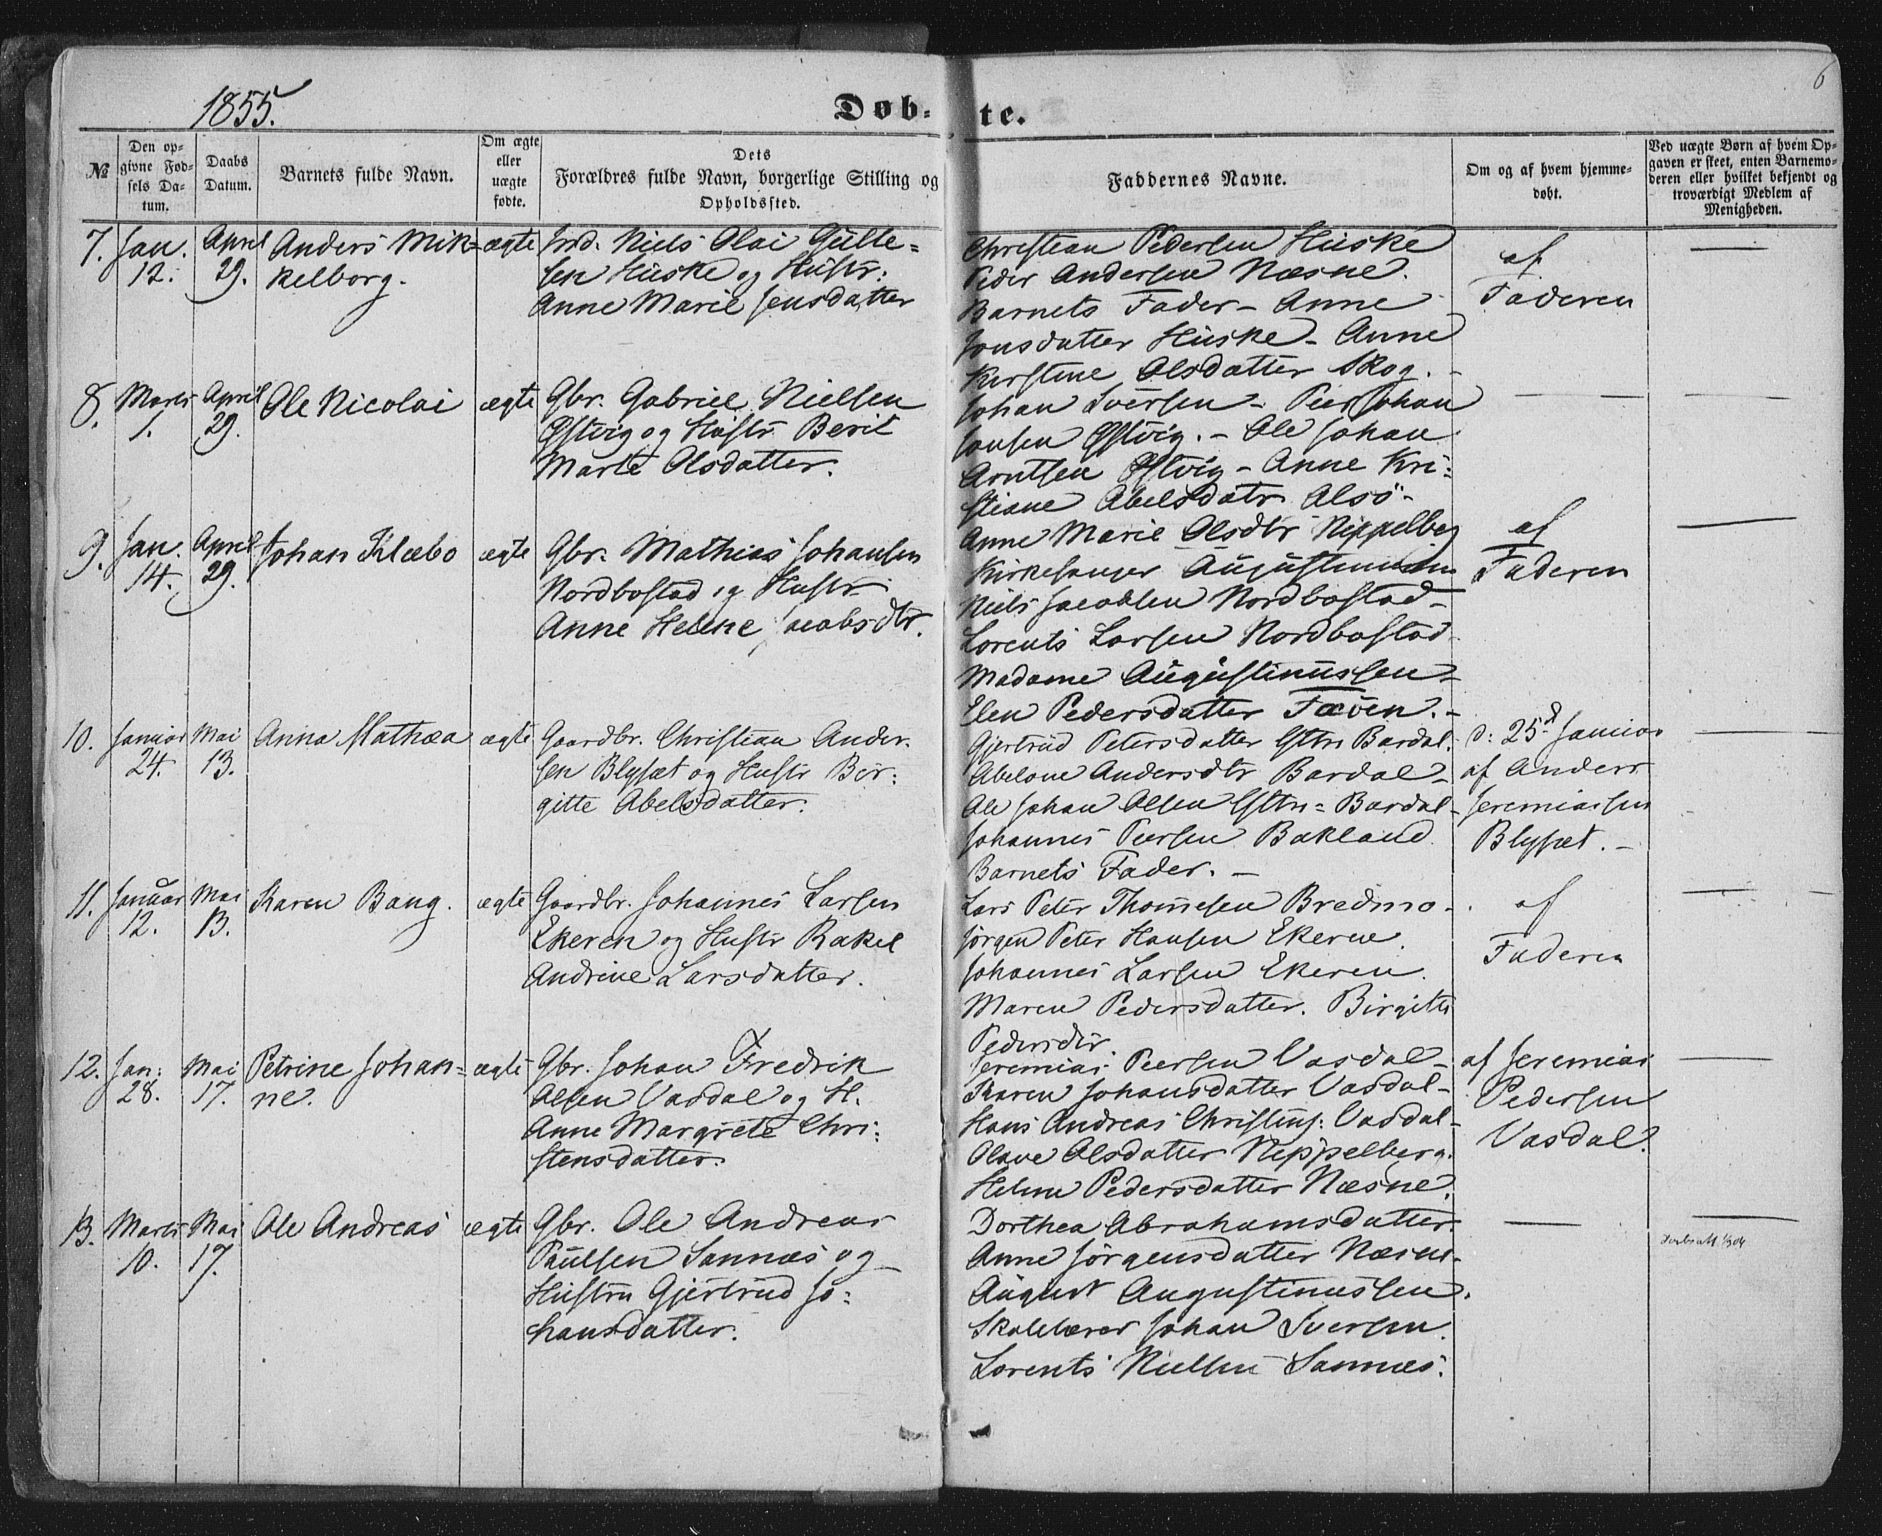 6
1855.
Døb-te.
№
Den op-
givne Fød-
sels Da-
tum.
Daabs
Datum.
Barnets fulde Navn.
Om ægte
eller
uægte
fødte.
Dets
Forældres fulde Navn, borgerlige Stilling og
Opholdssted.
Faddernes Navne.
Om og af hvem hjemme-
døbt.
Ved uægte Børn af hvem Op-
gaven er skeet, enten Barnemo-
deren eller hvilket bekjendt og
troværdigt Medlem af
Menigheden.
7.
Jan.
12.
April
29.
Anders Mik-
kelborg.
ægte
Ind. Niels Olai Gulle-
sen Huske og Hustr:
Anne Marie Jensdatter
Christian Pedersen Huske
Peder Andersen Næsne.
Barnets Fader - Anne
Jonsdatter Huske - Anne
Kirstine Olsdatter Skog. -
af
Faderen
8.
Marts
1.
April
29.
Ole Nicolai
ægte
Gbr. Gabriel Nielsen
Østvig og Hustr Berit
Marte Olsdatter.
Johan Iversen - Peer Johan
Jonsen Østvig. - Ole Johan
Arntsen Østvig - Anne Kri-
stiane Abelsdatr Alsö -
9.
Jan.
14.
April
29.
Johan Klæbo
ægte
Gbr. Mathias Johansen
Nordbostad og Hustr
Anne Helene Jacobsdtr.
Anne Marie Olsdtr Nippelberg
Kirkesanger Augustinussen
Niels Jacobsen Nordbostad -
Lorents Larsen Nordbostad
Madame Augustinussen -
Elen Pedersdatter Føven. -
af
Faderen
10.
Januar
24.
Mai
13.
Anna Mathea
ægte
Gaardbr. Christian Ander-
sen Blysæt og Hustr Bir-
gitte Abelsdatter.
Gjertrud Petersdatter Bardal.
Abelone Andersdtr Bardal -
Ole Johan Olsen Bardal -
Johannes Peersen Bakland.
Barnets Fader. -
d: 25d Januar
af Anders
Jeremiassen
Blysæt. -
11.
Januar
12.
Mai
13.
Karen Bang.
ægte
Gaardbr. Johannes Larsen
Ekeren og Hustr Rakel
Andrine Larsdatter.
Lars Peter Thomesen Bredmo -
Jørgen Peter Hansen Ekerne.
Johannes Larsen Ekeren.
Maren Pedersdatter. Birgitte
Pedersdtr.
af
Faderen
12.
Jan:
28.
Mai
17.
Petrine Johan-
ne.
ægte
Gbr. Johan Fredrik
Olsen Vasdal og H.
Anne Margrete Chri-
stensdatter.
Jeremias Peersen Vasdal -
Karen Johansdatter Vasdal -
Hans Andreas Vasdal -
Olave Olsdatter Nippelberg.
Heline Pedersdatter Næsne.
af Jeremias
Pedersen
Vasdal.
13.
Marts
10.
Mai
17.
Ole Andreas
ægte
Gbr. Ole Andreas
Paulsen Sannæs og
Hustru Gjertrud Jo-
hansdatter.
Dorthea Abrahamsdatter.
Anne Jørgensdatter Næsne -
August Augustinussen.
Skolelærer Johan Iversen.
Lorents Nielsen Sannæs.